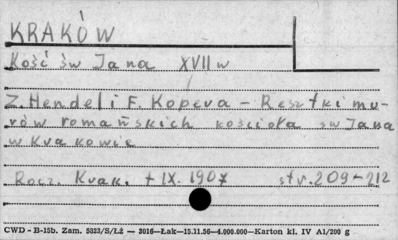 KRAKÓW
Kość św Jana XVII w
Z. Hendel i F. Kopera – Resztki mu-
rów romańskich kościoła św Jana
w Krakowie
Rocz. Krak. t IX. 1907 str. 209–212
CWD - B-15b. Zam. 5823/S/Lż — 2016—Łak—15.11.56—4.000.000—Karton kl. IV A1/200 g